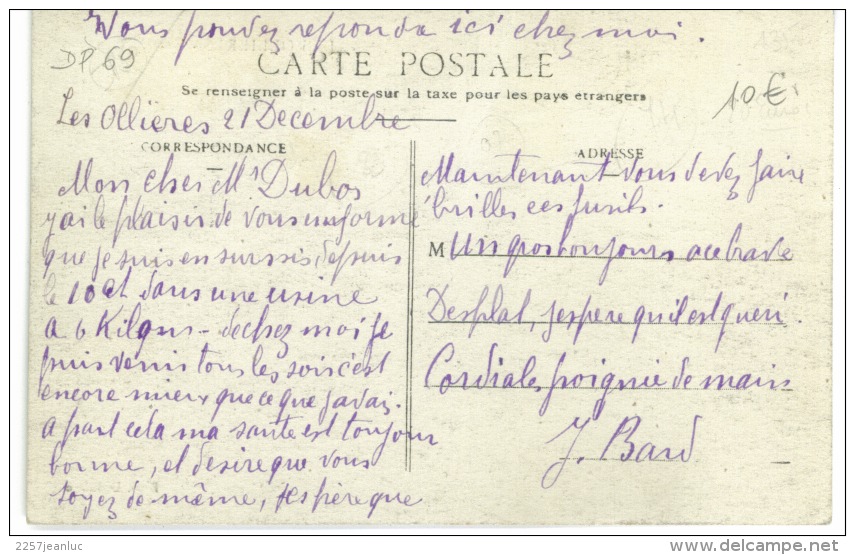 Vous pouvez reponda ici chez moi.
DP 69
CARTE POSTALE
Se renseigner à la poste sur la taxe pour les pays étrangers
10€
Les Ollieres 21 Decembre
CORRESPONDANCE
Mon cher Mr Dubos
y ai le plaisir de vous informé
que je suis en sursis depuis
le 10 ct dans une usine
a 6 Kilgms - de chez moi je
puis venir tous les soirs c'est
encore mieux que ce que javai.
a part cela ma sante est toujour
bonne, et desire que vous
soyez de même, jespère que
ADRESSE
Maintenant vous devez faire
briller ces fusils.
M Un gros bonjours a ce brave
Desplat, jespere qu'il est gueri
Cordiale poignie de main
J. Bard
2257jeanluc
www.delcampe.net